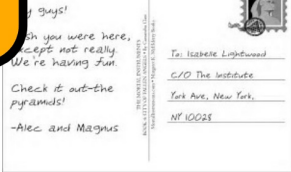 y guys!
sh you were here,
xcept not really.
We're having fun.
Check it out-the
pyramids!
-Alec and Magnus
THE MORTAL INSTRUMENTS
To: Isabelle Lightwood
C/O The Institute
York Ave, New York,
NY 10028